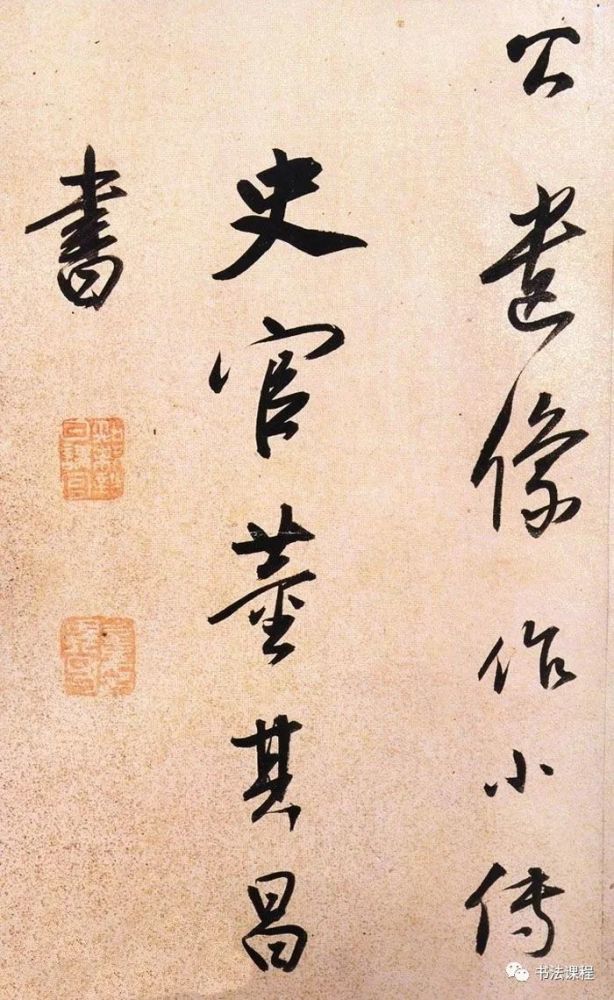 公遗像作小傳
史官董其昌
書
书法课程